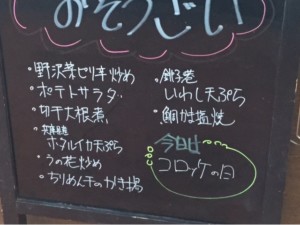 おそうざい
・野沢菜ピリ辛炒め
・ポテトサラダ
・切干大根煮
ホタルイカ天ぷら
・うの花炒め
・ちりめん干のかき揚
・銚子港
いわし天ぷら
・鯛かま塩焼
今日は
コロッケの日